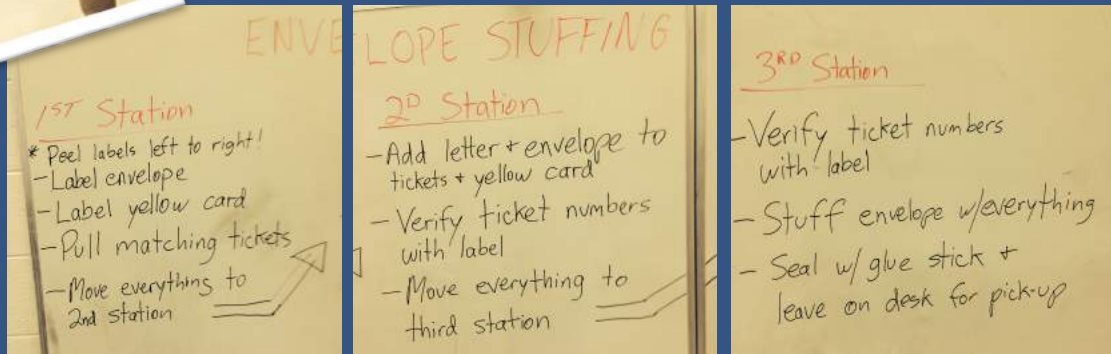 ENVELOPE STUFFING
1ST Station
* Peel labels left to right!
- Label envelope
- Label yellow card
- Pull matching tickets
- Move everything to
2nd station
2D Station
- Add letter + envelope to
tickets + yellow card
- Verify ticket numbers
with label
- Move everything to
third station
3RD Station
- Verify ticket numbers
with label
- Stuff envelope w/everything
- Seal w/ glue stick +
leave on desk for pick-up